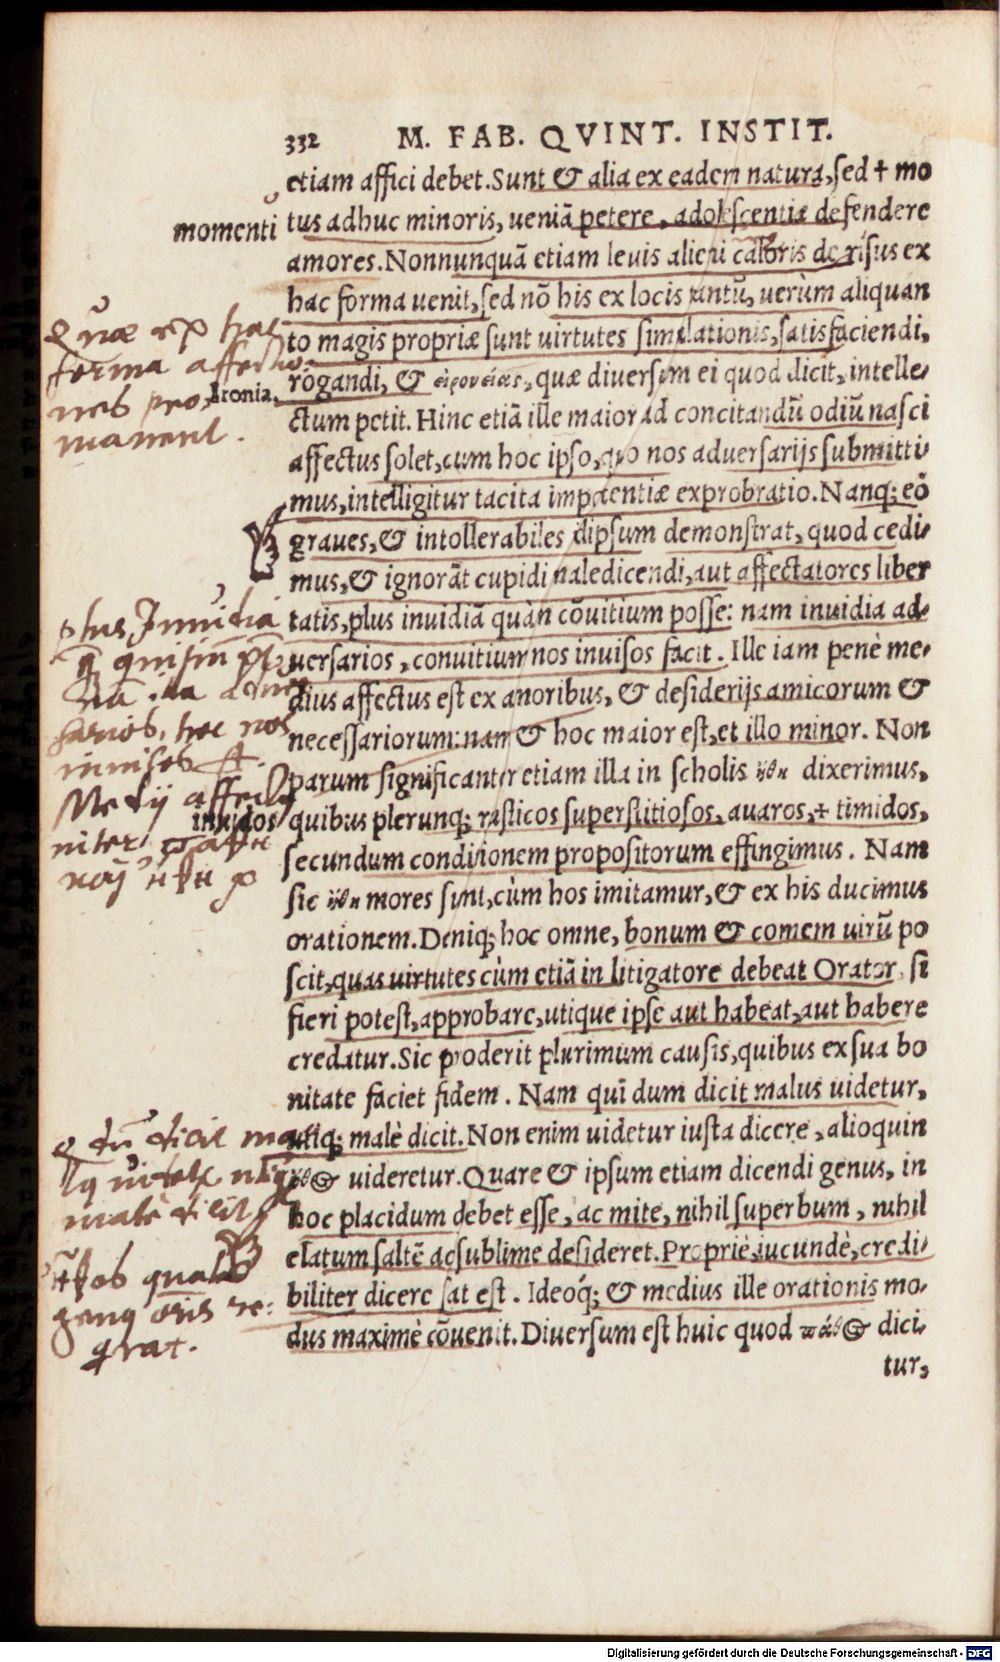 332 M. FAB. QVINT. INSTIT.
etiam affici debet. Sunt & alia ex eadem natura, sed † mo
momenti
tus adhuc minoris, ueniā petere, adolescentiæ defendere
amores. Nonnunquā etiam leuis alieni caloris derisus ex
hac forma uenit, sed nō his ex locis tantū, uerùm aliquan
to magis propriæ sunt uirtutes simulationis, satisfaciendi,
Quæ ex hac
forma affectio-
nes pro-
manent.
Ironia.
rogandi, & εἰρωνείας, quæ diuersum ei quod dicit, intelle-
ctum petit. Hinc etiā ille maior ad concitandū odiū nasci
affectus solet, cum hoc ipso, quo nos aduersarijs submitti-
mus, intelligitur tacita impotentiæ exprobratio. Nanq; eo
graues, & intollerabiles id ipsum demonstrat, quod cedi-
mus, & ignorāt cupidi maledicendi, aut affectatores liber
tatis, plus inuidiā quàm cōuitium posse: nam inuidia ad-
uersarios, conuitium nos inuisos facit. Ille iam penè me-
dius affectus est ex amoribus, & desiderijs amicorum &
necessariorum: nam & hoc maior est, et illo minor. Non
plus Inuidia
inuisos
Medij affectus
parum significanter etiam illa in scholis ἤθη dixerimus,
inuidos
quibus plerunq; rusticos superstitiosos, auaros, † timidos,
secundum conditionem propositorum effingimus. Nam
sic ἤθη mores sunt, cùm hos imitamur, & ex his ducimus
orationem. Deniq; hoc omne, bonum & comem uirū po
scit, quas uirtutes cùm etiā in litigatore debeat Orator, si
fieri potest, approbare, utique ipse aut habeat, aut habere
credatur. Sic proderit plurimum causis, quibus ex sua bo
nitate faciet fidem. Nam qui dum dicit malus uidetur,
utiq; malè dicit. Non enim uidetur iusta dicere, alioquin
ἦθος uideretur. Quare & ipsum etiam dicendi genus, in
hoc placidum debet esse, ac mite, nihil superbum, nihil
elatum saltē ac sublime desideret. Propriè, iucundè, credi-
biliter dicere sat est. Ideoq́; & medius ille orationis mo-
dus maximè cōuenit. Diuersum est huic quod πάθος dici-
tur,
malè dicit
Digitalisierung gefördert durch die Deutsche Forschungsgemeinschaft - DFG